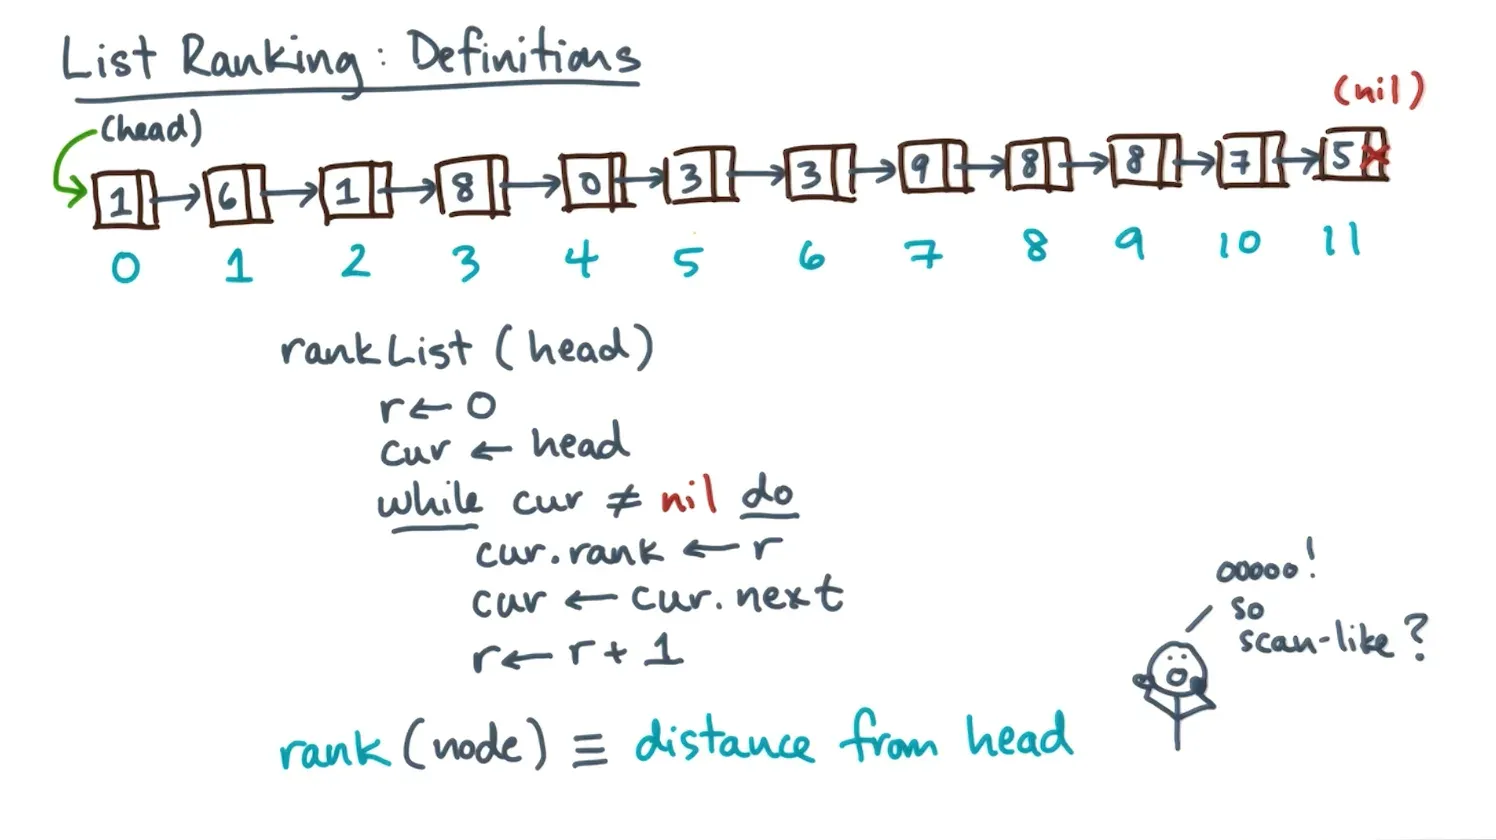 List Ranking: Definitions
(nil)
(head)
1 6 1 8 0 3 3 9 8 8 7 5
0 1 2 3 4 5 6 7 8 9 10 11
rankList (head)
r ← 0
cur ← head
while cur ≠ nil do
cur.rank ← r
cur ← cur.next
r ← r + 1
ooooo!
so
scan-like?
rank (node) ≡ distance from head